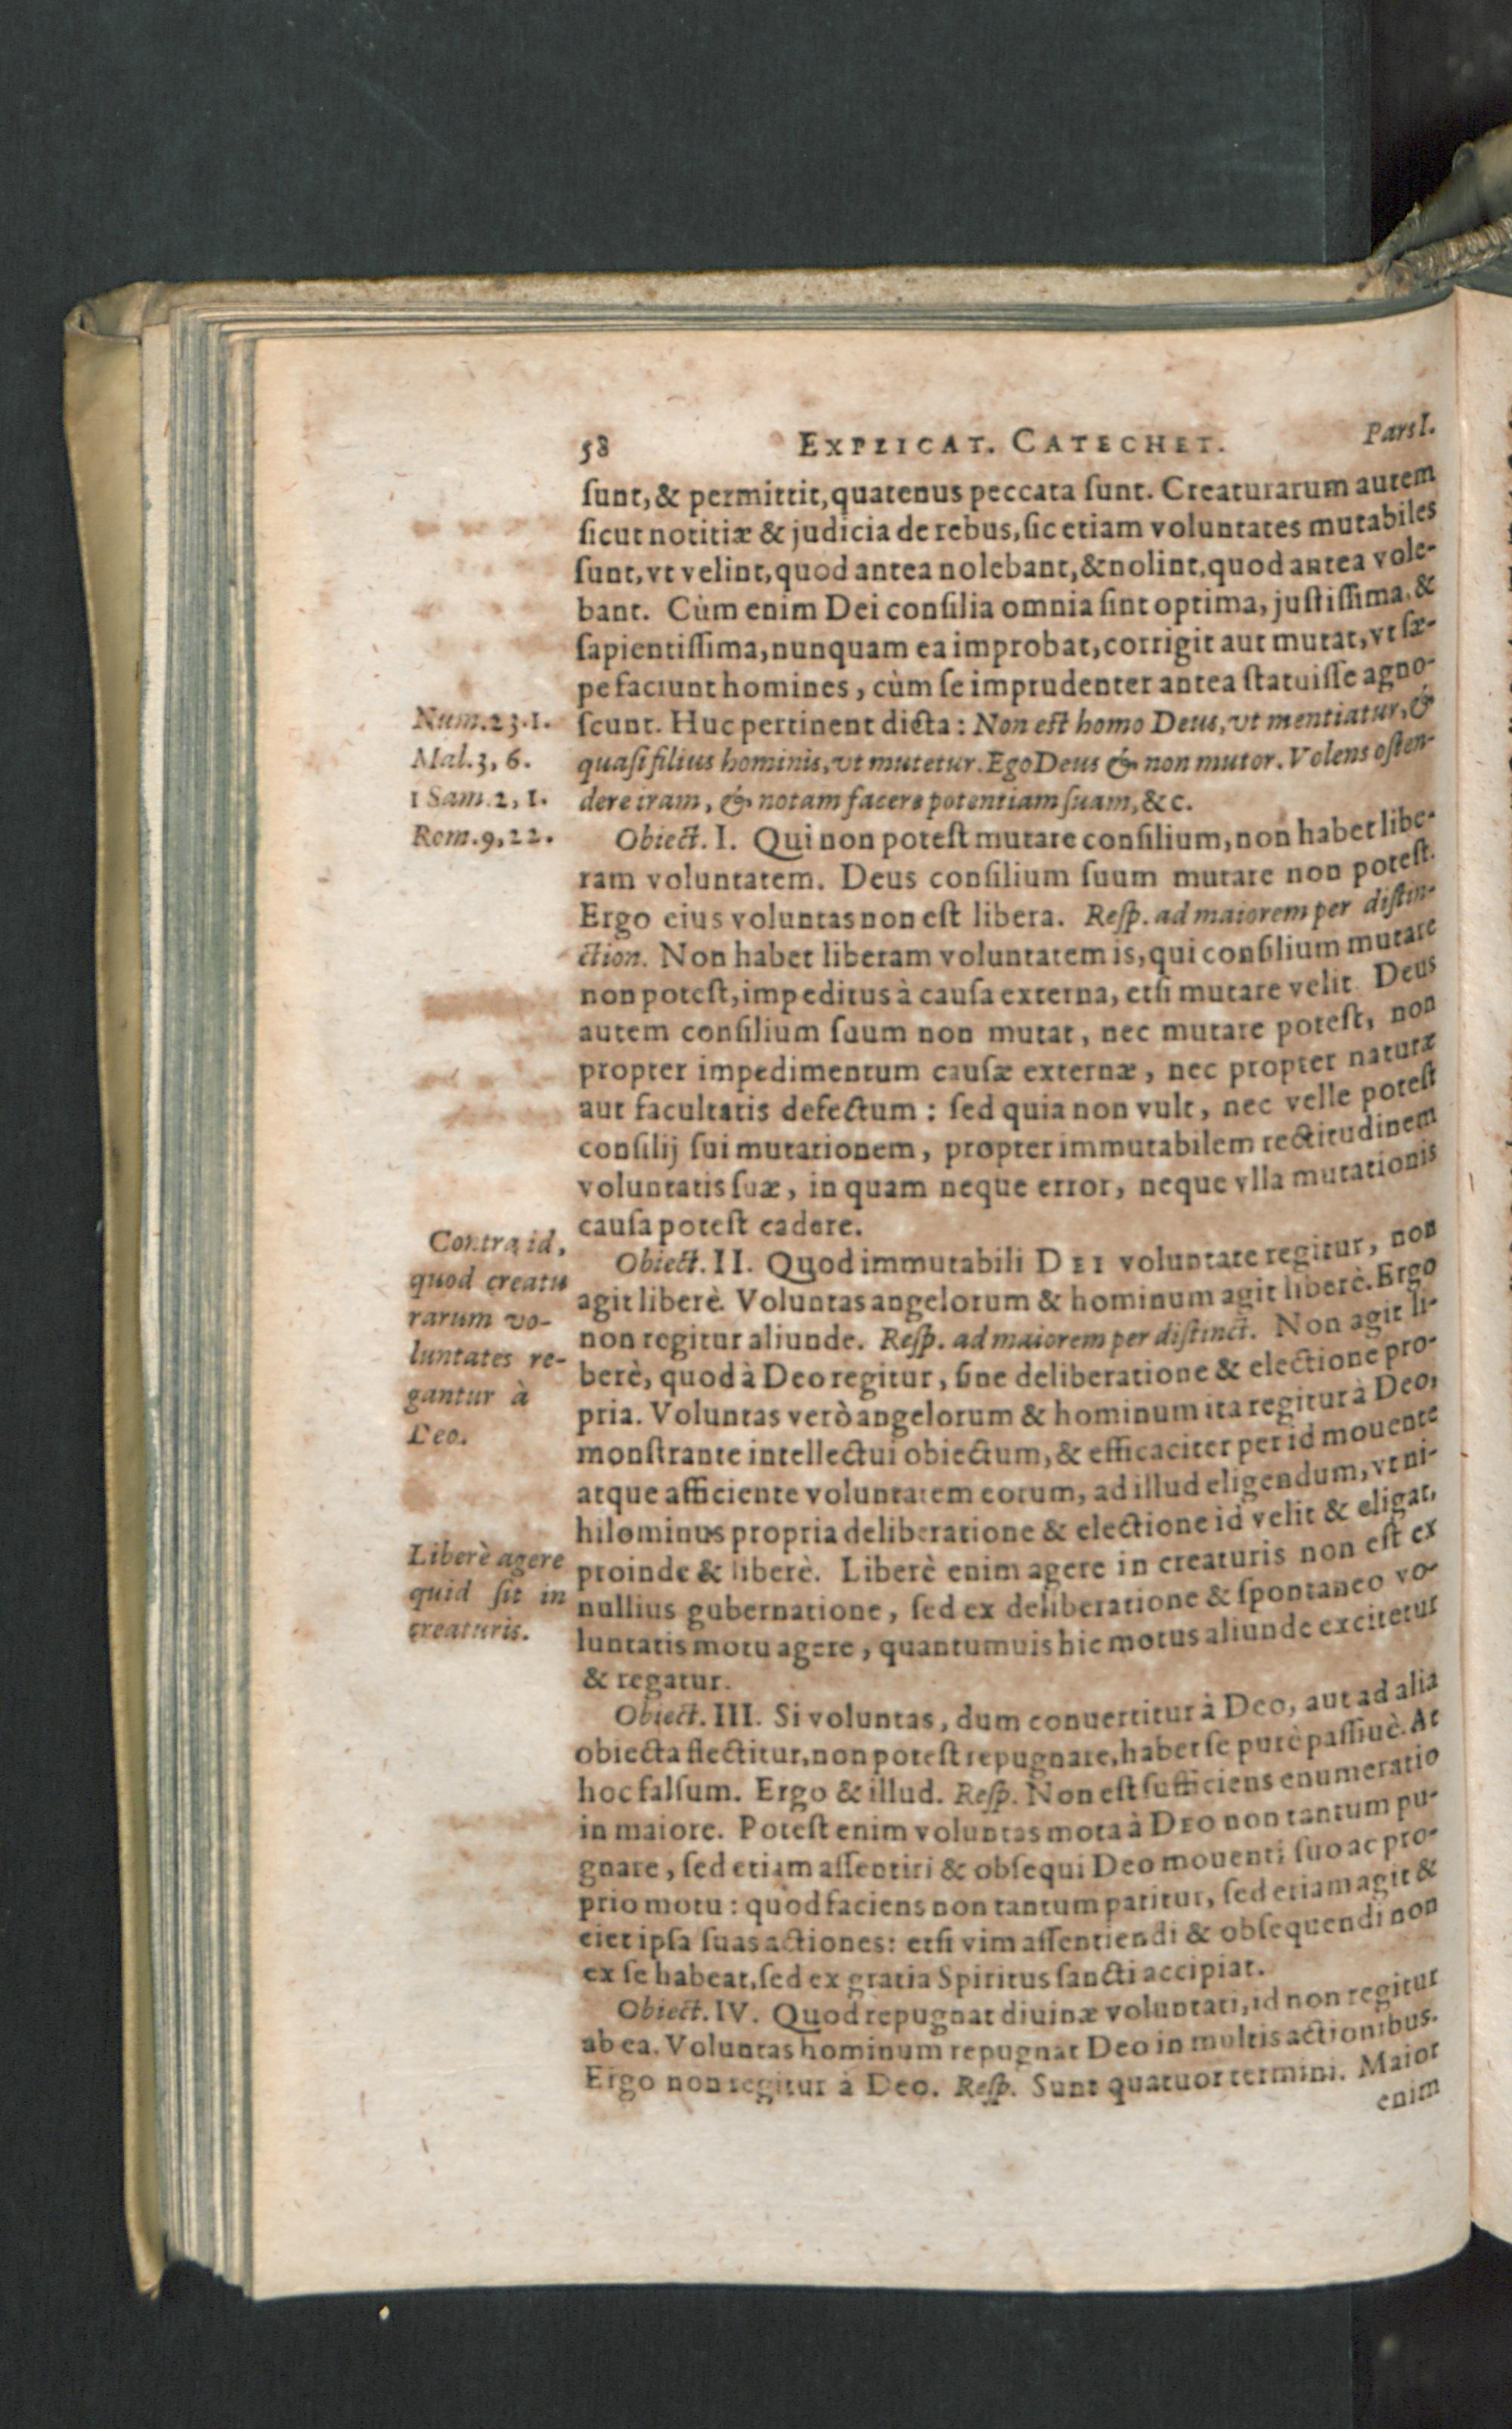 58 EXPLICAT. CATECHET. Pars I.
ſunt, & permittit, quatenus peccata ſunt. Creaturarum autem
ſicut notitiæ & judicia de rebus, ſic etiam voluntates mutabiles
ſunt, vt velint, quod antea nolebant, & nolint, quod antea vole-
bant. Cùm enim Dei conſilia omnia ſint optima, juſtiſſima, &
ſapientiſſima, nunquam ea improbat, corrigit aut mutat, vt ſæ-
pe faciunt homines, cùm ſe imprudenter antea ſtatuiſſe agno-
ſcunt. Huc pertinent dicta: Non eſt homo Deus, vt mentiatur, &
quaſi filius hominis, vt mutetur. Ego Deus & non mutor. Volens oſten-
dere iram, & notam facere potentiam ſuam, &c.
Num. 23. 1.
Mal. 3, 6.
1 Sam. 2, 1.
Rom. 9, 22.
Obiect. I. Qui non poteſt mutare conſilium, non habet libe-
ram voluntatem. Deus conſilium ſuum mutare non poteſt.
Ergo eius voluntas non eſt libera. Reſp. ad maiorem per diſtin-
ction. Non habet liberam voluntatem is, qui conſilium mutare
non poteſt, impeditus à cauſa externa, etſi mutare velit. Deus
autem conſilium ſuum non mutat, nec mutare poteſt, non
propter impedimentum cauſæ externæ, nec propter naturæ
aut facultatis defectum: ſed quia non vult, nec velle poteſt
conſilij ſui mutationem, propter immutabilem rectitudinem
voluntatis ſuæ, in quam neque error, neque vlla mutationis
cauſa poteſt cadere.
Contra id,
quod creatu
rarum vo-
luntates re-
gantur à
Deo.
Obiect. II. Quod immutabili DEI voluntate regitur, non
agit liberè. Voluntas angelorum & hominum agit liberè. Ergo
non regitur aliunde. Reſp. ad maiorem per diſtinct. Non agit li-
berè, quod à Deo regitur, ſine deliberatione & electione pro-
pria. Voluntas verò angelorum & hominum ita regitur à Deo,
monſtrante intellectui obiectum, & efficaciter per id mouente
atque afficiente voluntatem eorum, ad illud eligendum, vt ni-
hilominus propria deliberatione & electione id velit & eligat,
proinde & liberè. Liberè enim agere in creaturis non eſt ex
nullius gubernatione, ſed ex deliberatione & ſpontaneo vo-
luntatis motu agere, quantumuis hic motus aliunde excitetur
& regatur.
Liberè agere
quid ſit in
creaturis.
Obiect. III. Si voluntas, dum conuertitur à Deo, aut ad alia
obiecta flectitur, non poteſt repugnare, habet ſe purè paſſiuè. At
hoc falſum. Ergo & illud. Reſp. Non eſt ſufficiens enumeratio
in maiore. Poteſt enim voluntas mota à DEO non tantum pu-
gnare, ſed etiam aſſentiri & obſequi Deo mouenti ſuo ac pro-
prio motu: quod faciens non tantum patitur, ſed etiam agit &
ciet ipſa ſuas actiones: etſi vim aſſentiendi & obſequendi non
ex ſe habeat, ſed ex gratia Spiritus ſancti accipiat.
Obiect. IV. Quod repugnat diuinæ voluntati, id non regitur
ab ea. Voluntas hominum repugnat Deo in multis actionibus.
Ergo non regitur à Deo. Reſp. Sunt quatuor termini. Maior
enim